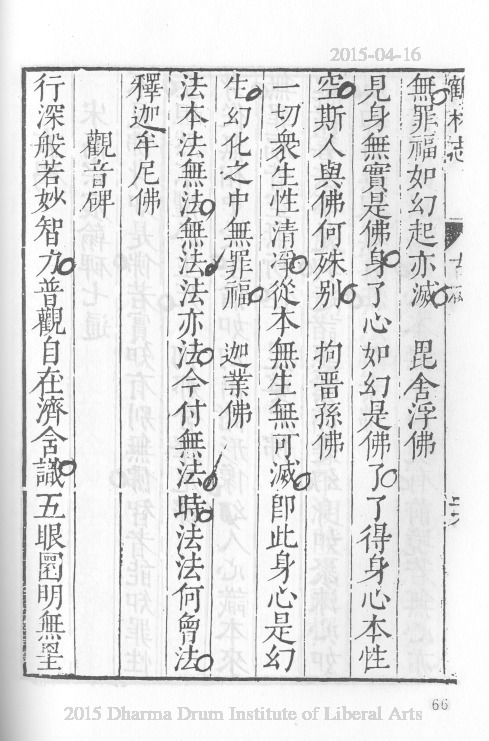 2015-04-16
無罪福如幻起亦滅 毘舍浮佛
見身無實是佛身了心如幻是佛了了得身心本性
空斯人與佛何殊别 拘畱孫佛
一切衆生性清淨從本無生無可滅卽此身心是幻
生幻化之中無罪福 迦葉佛
法本法無法無法法亦法今付無法時法法何曾法
釋迦牟尼佛
觀音碑
行深般若妙智力普觀自在濟含識五眼圓明無罣
66
2015 Dharma Drum Institute of Liberal Arts